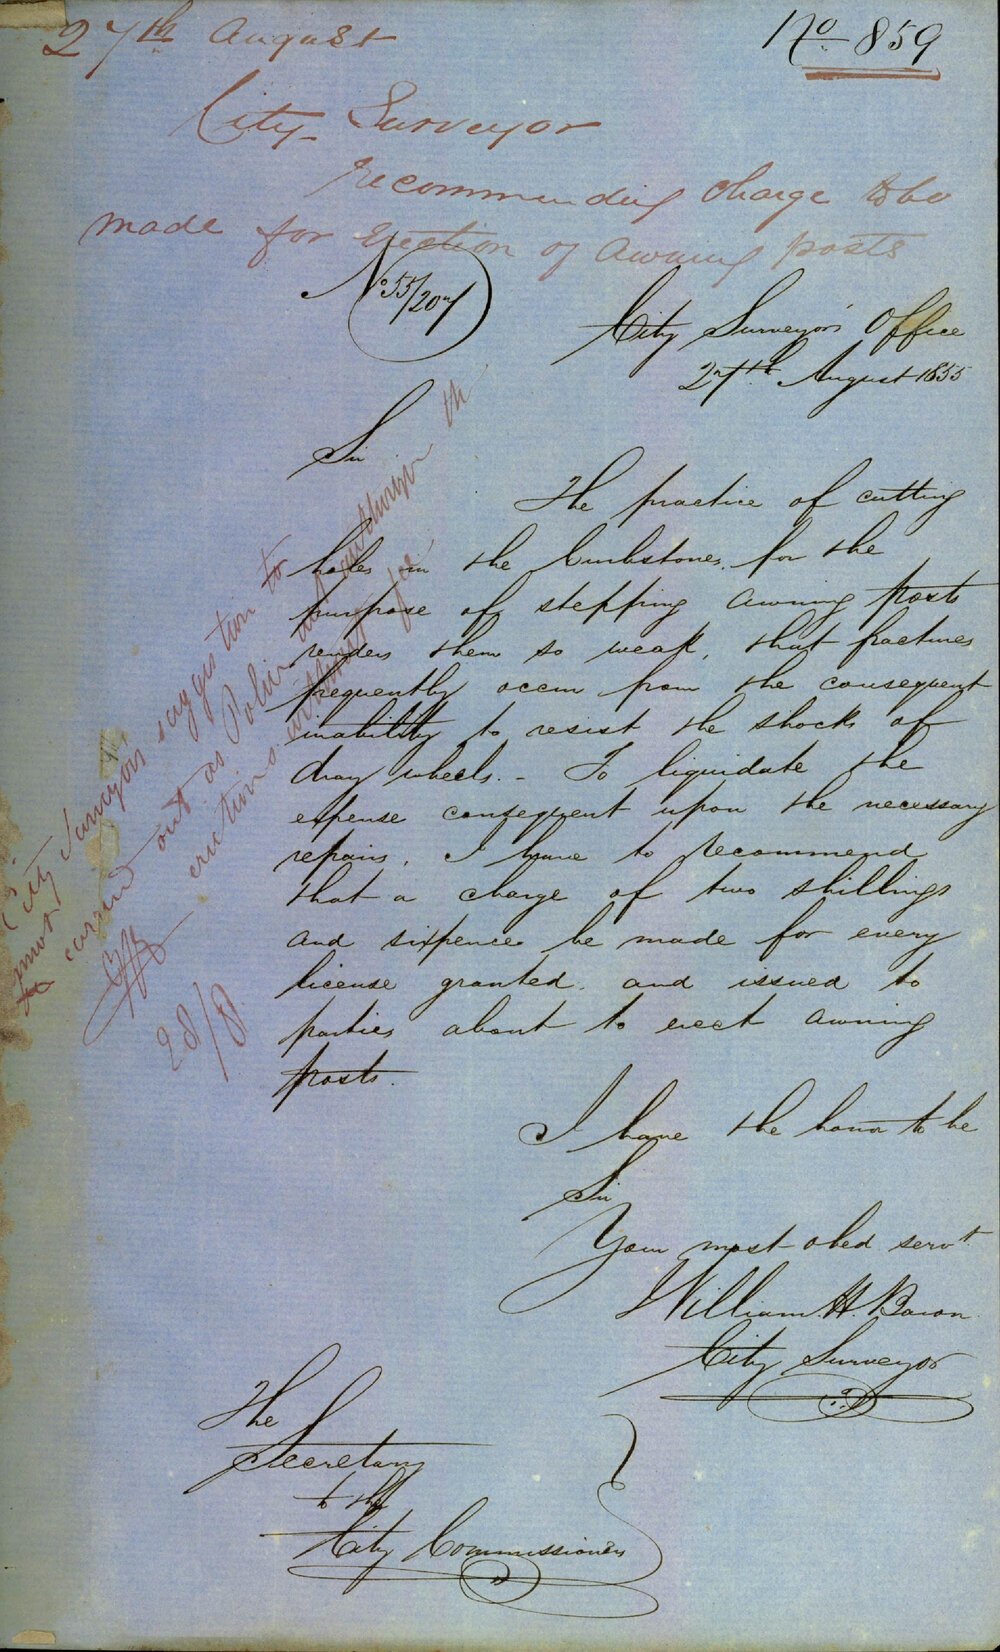 27th August
No 859
City Surveyor
recommending charge to be
made for Erection of awning posts
No 55/207
City Surveyor's Office
27th August 1855
Sir
The practice of cutting
holes in the Curbstones, for the
purpose of stepping awning posts
renders them so weak, that fractures
frequently occur from the consequent
inability to resist the shocks of
dray wheels. - To liquidate the
expense consequent upon the necessary
repairs, I have to recommend
that a charge of two shillings
and sixpence be made for every
license granted, and issued to
parties about to erect awning
posts.
I have the honor to be
Sir
Your most obed servt
William H. Bacon
City Surveyor
The
Secretary
to the
City Commissioners
City Surveyors suggestion to
must carried out as Police
erections without fee
28/8